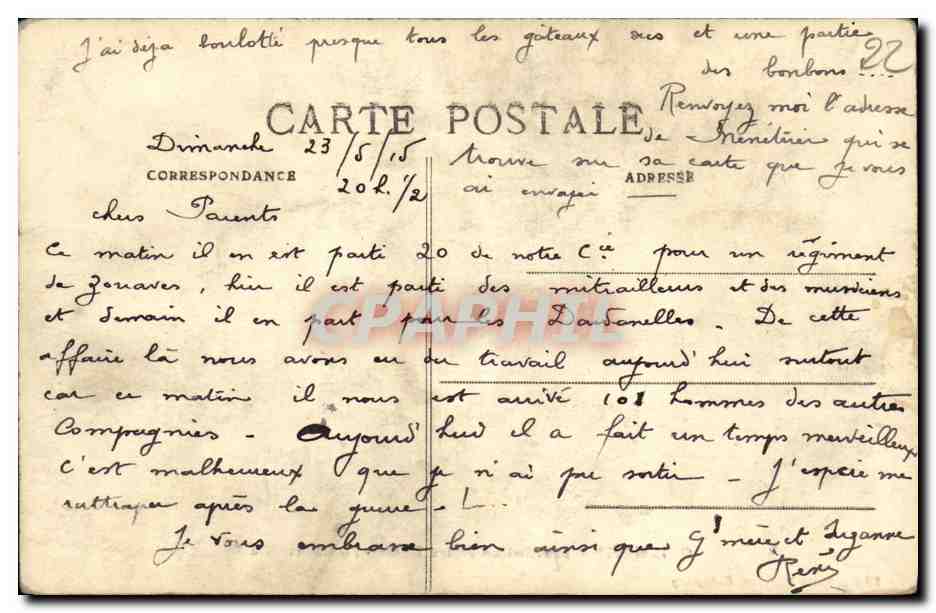 J'ai déja boulotté presque tous les gâteaux secs et une partie
des bonbons....
22
Renvoyez moi l'adresse
de Ménétrier qui se
trouve sur sa carte que je vous
ai envoyée
CARTE POSTALE
Dimanche 23/5/15
CORRESPONDANCE
20 h. 1/2
ADRESSE
chers Parents
Ce matin il en est parti 20 de notre Cie pour un régiment
de Zouaves, hier il est parti des mitrailleurs et des musiciens
et demain il en part pour les Dardanelles. De cette
affaire là nous avons eu du travail aujourd'hui surtout
car ce matin il nous est arrivé 101 hommes des autres
Compagnies - Aujourd'hui il a fait un temps merveilleux
C'est malheureux que je n'ai pu sortir - J'espère me
rattraper après la guerre - !...
Je vous embrasse bien ainsi que Gd mère et Suzanne
René
CPAPHIL